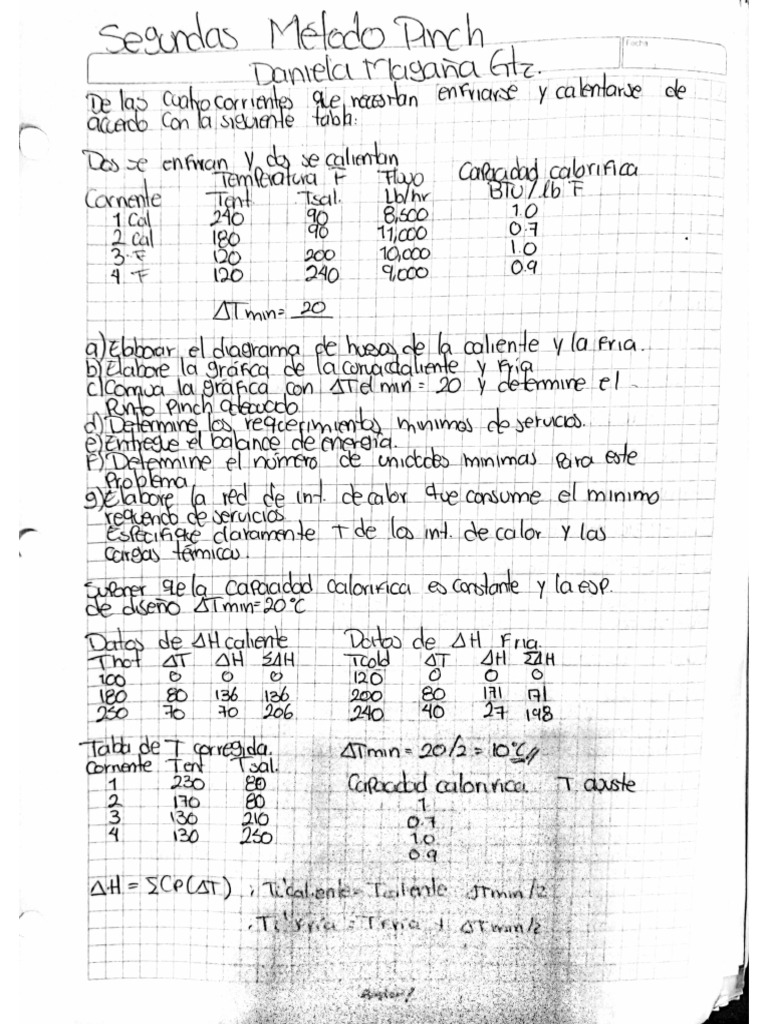 Segundas Método Pinch
Fecha
Daniela Magaña Gtz.
De las cuatro corrientes que necesitan enfriarse y calentarse de
acuerdo con la siguiente tabla:
Dos se enfrian y dos se calientan
Temperatura F Flujo Capacidad calorifica
Corriente Tent Tsal. Lb/hr BTU/lb F
1 Cal 240 90 8,500 1.0
2 Cal 180 90 11,000 0.7
3 F 120 200 10,000 1.0
4 F 120 240 9,000 0.9
ΔTmin= 20
a) Elaborar el diagrama de husos de la caliente y la fria.
b) Elabore la gráfica de la caliente y Fria
c) la gráfica con ΔT el min = 20 y determine el
Punto Pinch adecuado
d) Determine los requerimientos minimos de servicios.
e) Entregue el balance de energía.
f) Determine el número de unidades minimas para este
Problema
g) Elabore la red de int. de calor que consume el minimo
requerido de servicios
Especifique claramente T de los int. de calor y las
cargas térmicas.
Suponer que la capacidad calorifica es constante y la esp.
de diseño ΔTmin=20°C
Datos de ΔH caliente Datos de ΔH Fria
Thot ΔT ΔH ΣΔH Tcold ΔT ΔH ΣΔH
100 0 0 0 120 0 0 0
180 80 136 136 200 80 171 171
250 70 70 206 240 40 27 198
Tabla de T corregida. ΔTmin = 20/2 = 10°C//
Corriente Tent Tsal. Capacidad calorifica T ajuste
1 230 80 1
2 170 80 0.7
3 130 210 1.0
4 130 250 0.9
ΔH = ΣCp(ΔT) , Ti'caliente = Tcaliente ΔTmin/2
. Ti'Fria = TFria + ΔTmin/2